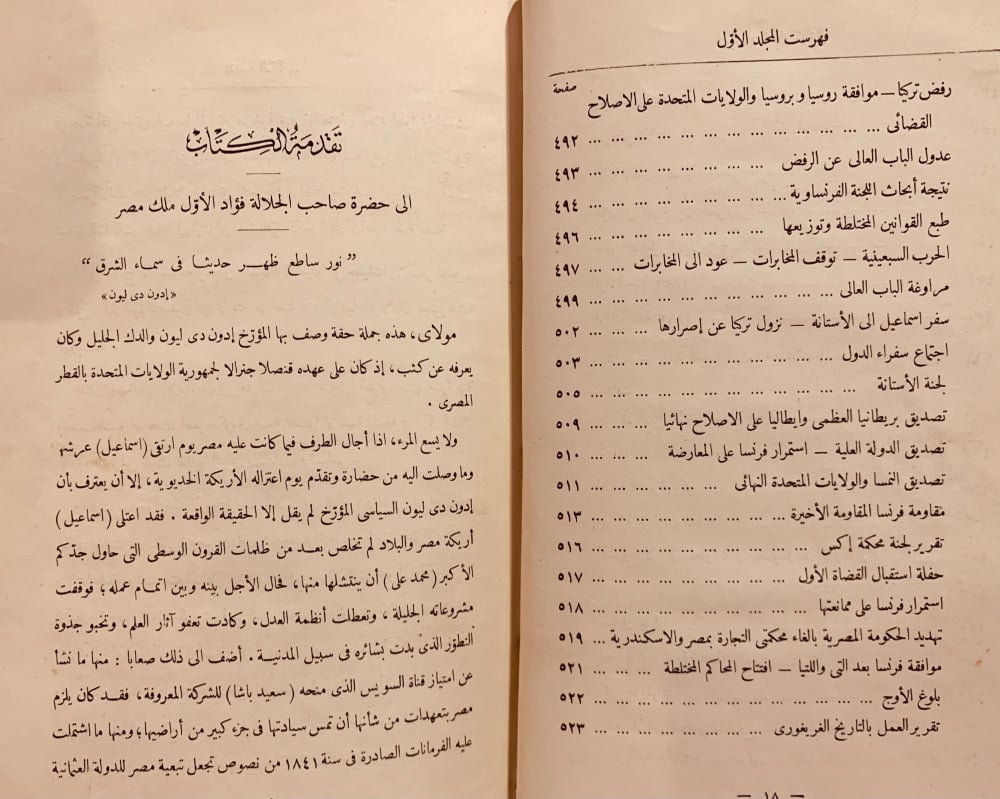 فهرست المجلد الأوّل
صفحة
رفض تركيا — موافقة روسيا وبروسيا والولايات المتحدة على الاصلاح
القضائى ... ... ... ... ... ... ... ... ... ... ... ... ٤٩٢
عدول الباب العالى عن الرفض ... ... ... ... ... ... ... ٤٩٣
نتيجة أبحاث اللجنة الفرنساوية ... ... ... ... ... ... ... ٤٩٤
طبع القوانين المختلطة وتوزيعها ... ... ... ... ... ... ... ٤٩٦
الحرب السبعينية — توقف المخابرات — عود الى المخابرات ... ... ٤٩٧
مراوغة الباب العالى ... ... ... ... ... ... ... ... ... ٤٩٩
سفر اسماعيل الى الأستانة — نزول تركيا عن إصرارها ... ... ... ٥٠٢
اجتماع سفراء الدول ... ... ... ... ... ... ... ... ... ٥٠٣
لجنة الأستانة ... ... ... ... ... ... ... ... ... ... ٥٠٥
تصديق بريطانيا العظمى وايطاليا على الاصلاح نهائيا ... ... ... ٥٠٩
تصديق الدولة العلية — استمرار فرنسا على المعارضة ... ... ... ٥١٠
تصديق النمسا والولايات المتحدة النهائى ... ... ... ... ... ٥١١
مقاومة فرنسا المقاومة الأخيرة ... ... ... ... ... ... ... ٥١٣
تقرير لجنة محكمة إكس ... ... ... ... ... ... ... ... ٥١٦
حفلة استقبال القضاة الأول ... ... ... ... ... ... ... ٥١٧
استمرار فرنسا على ممانعتها ... ... ... ... ... ... ... ... ٥١٨
تهديد الحكومة المصرية بالغاء محكمتى التجارة بمصر والاسكندرية ... ٥١٩
موافقة فرنسا بعد التى واللتيا — افتتاح المحاكم المختلطة ... ... ... ٥٢١
بلوغ الأوج ... ... ... ... ... ... ... ... ... ... ... ٥٢٢
تقرير العمل بالتاريخ الغريغورى ... ... ... ... ... ... ... ٥٢٣
— ١٨ —
تقدمة الكتاب
الى حضرة صاحب الجلالة فؤاد الأوّل ملك مصر
”نور ساطع ظهــر حديثا فى سماء الشرق“
«إدون دى ليون»
مولاى، هذه جملة حقة وصف بها المؤرّخ إدون دى ليون والدك الجليل وكان
يعرفه عن كثب، إذ كان على عهده قنصلا جنرالا لجمهورية الولايات المتحدة بالقطر
المصرى .
ولا يسع المرء، اذا أجال الطرف فيما كانت عليه مصر يوم ارتقى (اسماعيل) عرشها
وما وصلت اليه من حضارة وتقدّم يوم اعتزاله الأريكة الخديوية، إلا أن يعترف بأن
إدون دى ليون السياسى المؤرّخ لم يقل إلا الحقيقة الواقعة . فقد اعتلى (اسماعيل)
أريكة مصر والبلاد لم تتخلص بعد من ظلمات القرون الوسطى التى حاول جدّكم
الأكبر (محمد على) أن ينتشلها منها، فحال الأجل بينه وبين اتمام عمله؛ فوقفت
مشروعاته الجليلة، وتعطلت أنظمة العدل، وكادت تعفو آثار العلم، وتخبو جذوة
التطوّر الذى بدت بشائره فى سبيل المدنية . أضف الى ذلك صعابا : منها ما نشأ
عن امتياز قناة السويس الذى منحه (سعيد باشا) للشركة المعروفة، فقد كان يلزم
مصر بتعهدات من شأنها أن تمس سيادتها فى جزء كبير من أراضيها؛ ومنها ما اشتملت
عليه الفرمانات الصادرة فى سنة ١٨٤١ من نصوص تجعل تبعية مصر للدولة العثمانية